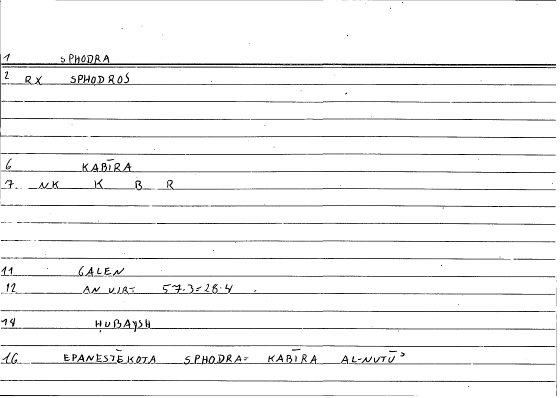 1 SPHODRA
2 RX SPHODROS
6 KABĪRA
7. NK K B R
11 GALEN
12 AN VIR= 57.3=28.4
14 ḤUBAYSH
16 EPANESTĒKOTA SPHODRA= KABĪRA AL-NUTŪʾ